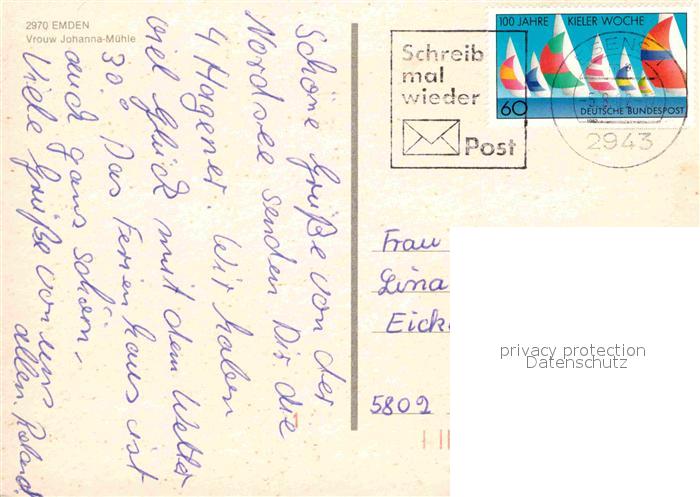 2970 EMDEN
Vrouw Johanna-Mühle
Schöne Grüße von der
Nordsee senden Dir die
4 Hagener. Wir haben
viel Glück mit dem Wetter
30.° Das Ferienhaus ist
auch ganz schön.
Viele Grüße von uns
allen Roland
Schreib
mal
wieder
Post
100 JAHRE KIELER WOCHE
60
DEUTSCHE BUNDESPOST
2943
Frau
Lina
Eick
5802
privacy protection
Datenschutz